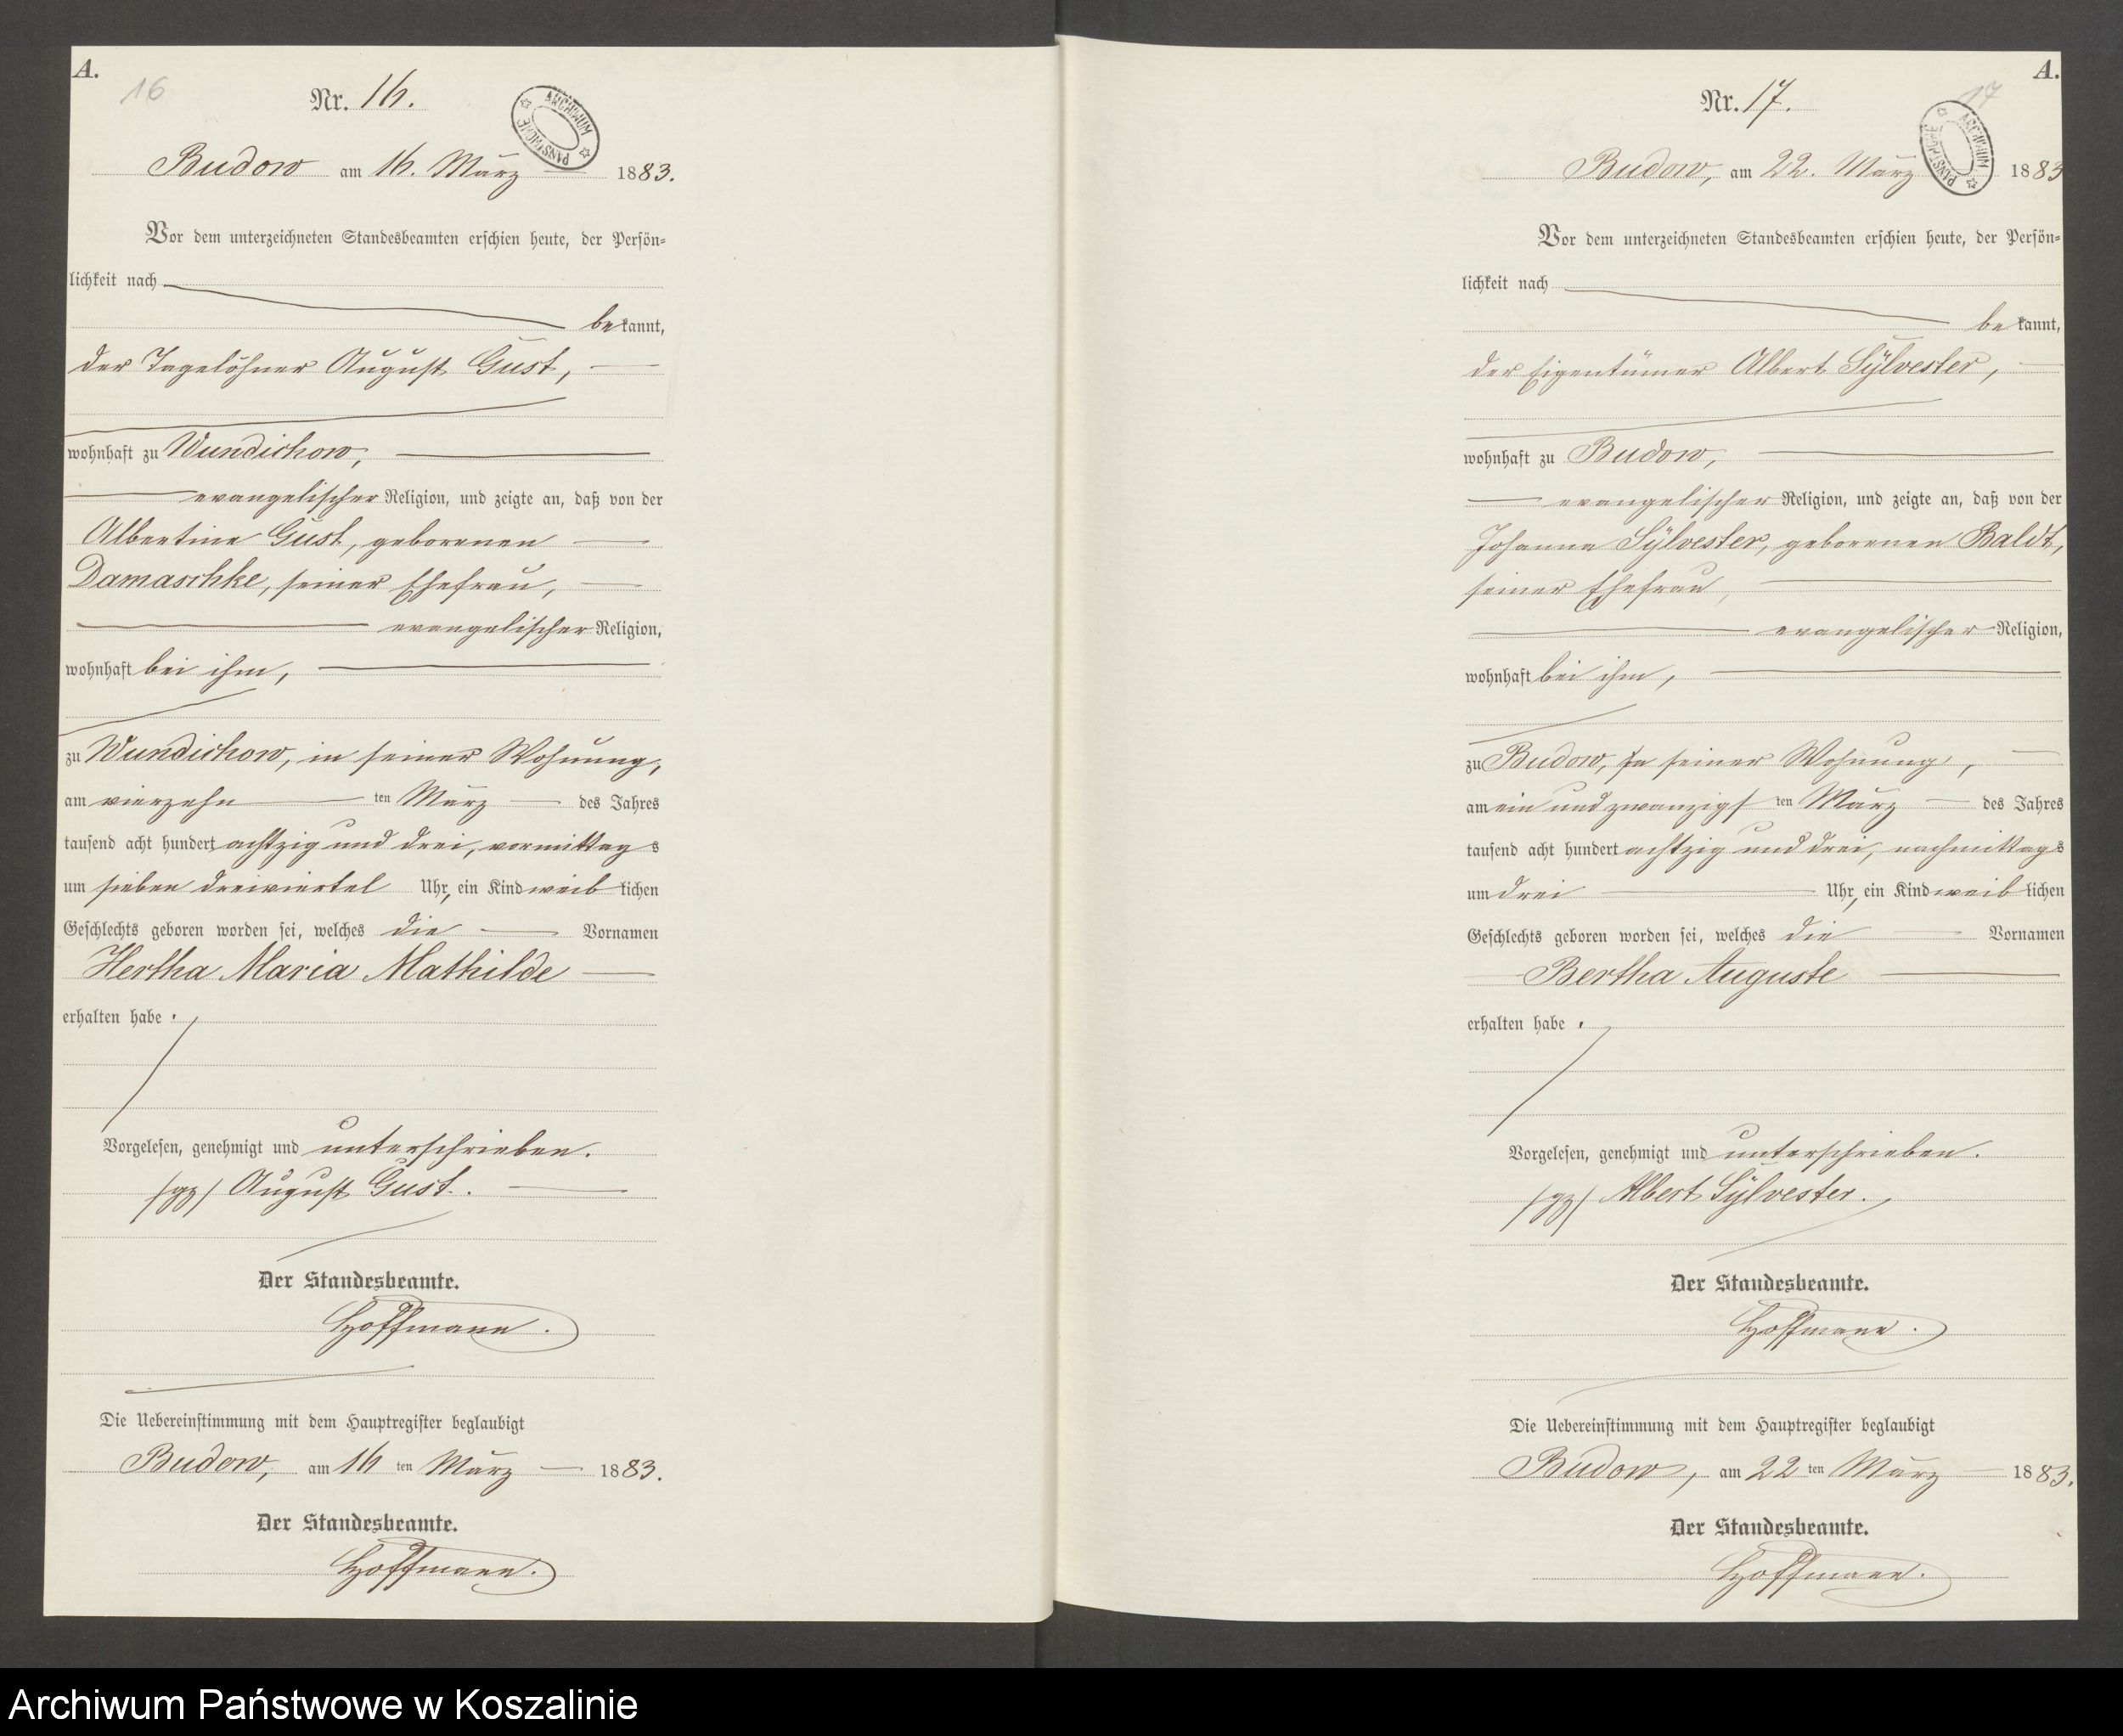 A.
16
Nr. 16.
ARCHIWUM PAŃSTWOWE
Budow am 16. März 1883.
Vor dem unterzeichneten Standesbeamten erschien heute, der Persön-
lichkeit nach
bekannt,
der Tagelöhner August Gust,
wohnhaft zu Wundichow,
evangelischer Religion, und zeigte an, daß von der
Albertine Gust, geborenen
Damaschke, seiner Ehefrau,
evangelischer Religion,
wohnhaft bei ihm,
zu Wundichow, in seiner Wohnung,
am vierzehn ten März des Jahres
tausend acht hundert achtzig und drei, vormittags
um sieben dreiviertel Uhr, ein Kind weiblichen
Geschlechts geboren worden sei, welches die Vornamen
Hertha Maria Mathilde
erhalten habe.
Vorgelesen, genehmigt und unterschrieben.
/gz/ August Gust.
Der Standesbeamte.
Hoffmann.
Die Uebereinstimmung mit dem Hauptregister beglaubigt
Budow, am 16 ten März 1883.
Der Standesbeamte.
Hoffmann.
A.
17
Nr. 17.
ARCHIWUM PAŃSTWOWE
Budow, am 22. März 1883
Vor dem unterzeichneten Standesbeamten erschien heute, der Persön-
lichkeit nach
bekannt,
der Eigentümer Albert Sÿlvester,
wohnhaft zu Budow,
evangelischer Religion, und zeigte an, daß von der
Johanna Sÿlvester, geborenen Baldt,
seiner Ehefrau,
evangelischer Religion,
wohnhaft bei ihm,
zu Budow, in seiner Wohnung,
am ein und zwanzigsten März des Jahres
tausend acht hundert achtzig und drei, nachmittags
um drei Uhr, ein Kind weiblichen
Geschlechts geboren worden sei, welches die Vornamen
Bertha Auguste
erhalten habe.
Vorgelesen, genehmigt und unterschrieben.
/gz/ Albert Sÿlvester.
Der Standesbeamte.
Hoffmann.
Die Uebereinstimmung mit dem Hauptregister beglaubigt
Budow, am 22 ten März 1883.
Der Standesbeamte.
Hoffmann.
Archiwum Państwowe w Koszalinie